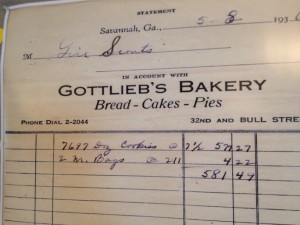 STATEMENT
Savannah, Ga., 5-8 193
M Girl Scouts
IN ACCOUNT WITH
GOTTLIEB'S BAKERY
Bread - Cakes - Pies
PHONE DIAL 2-2044 32ND AND BULL STRE
7697 Dz Cookies @ 7½ 577 27
2 M. Bags @ 211 4 22
581 49